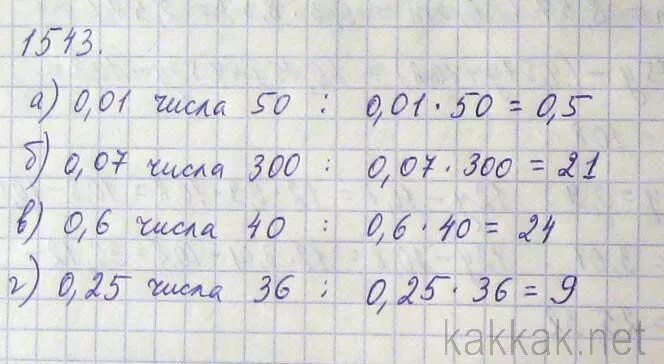 1543.
а) 0,01 числа 50 : 0,01 · 50 = 0,5
б) 0,07 числа 300 : 0,07 · 300 = 21
в) 0,6 числа 40 : 0,6 · 40 = 24
г) 0,25 числа 36 : 0,25 · 36 = 9
kakkak.net